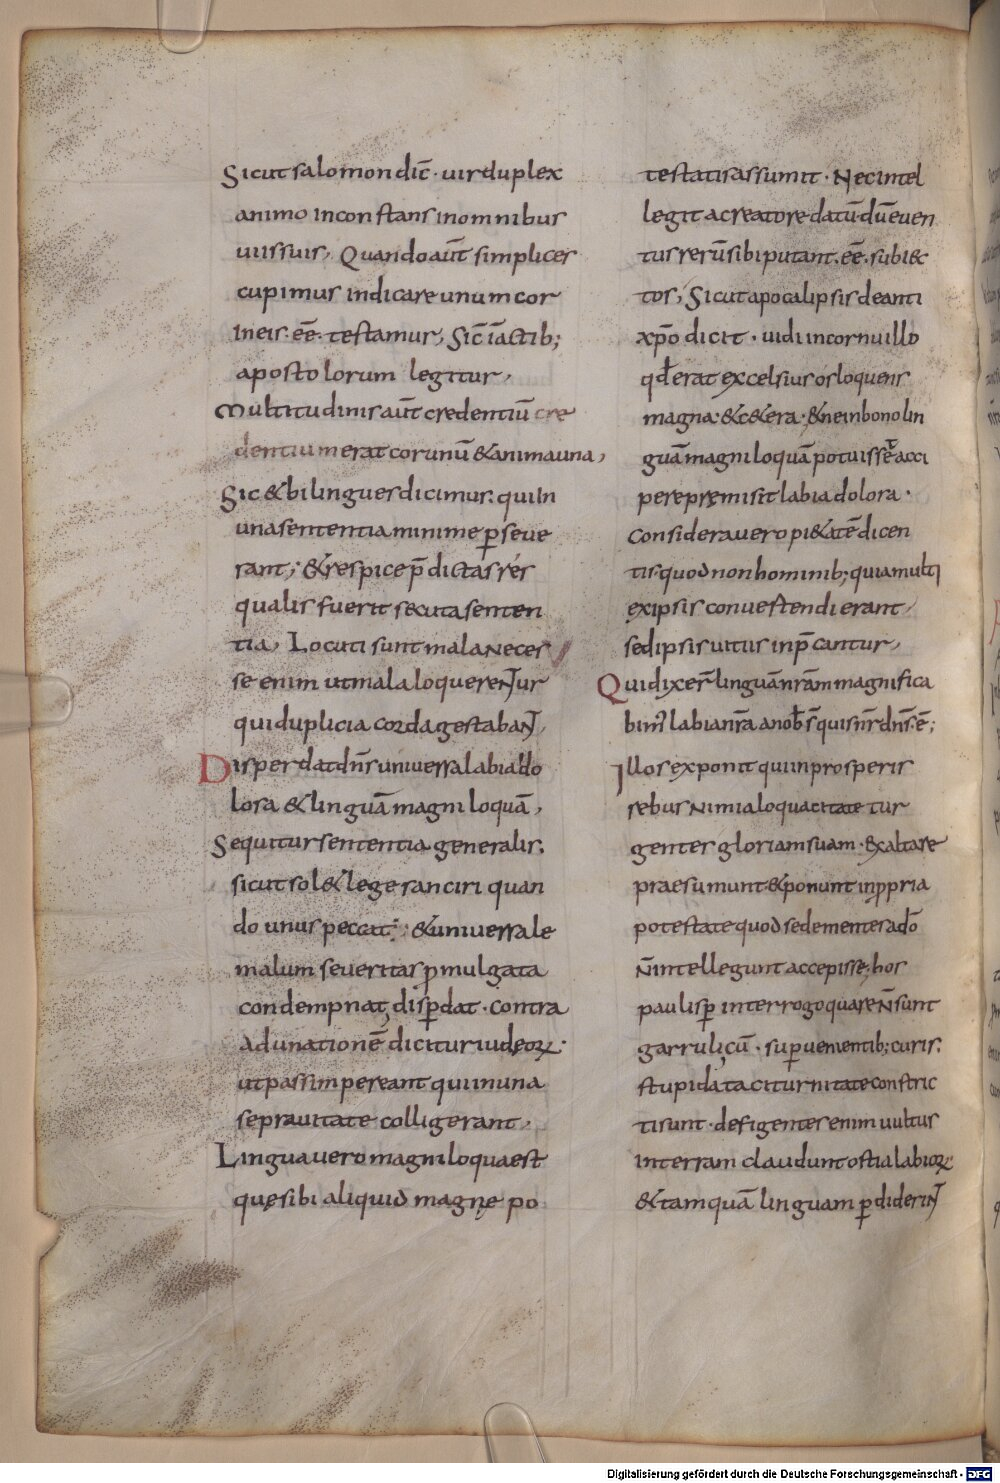 Sicut salomon dic̄· uir duplex
animo inconstans in omnibus
uiis suis, Quando aūt simplices
cupimus indicare unum cor
In eis· eē· testamur, Sic̄ iāctib;
apostolorum legitur,
Multitudinis aūt credentiū cre
dentium erat cor unū & anima una,
Sic & bilingues dicimus· qui In
una sententia minime p̄seue
rant; & respice p̄dictas res
qualis fuerit secuta senten
tia, Locuti sunt mala Neces
se enim ut mala loquereNTur
qui duplicia corda gestabaNT,
Disperdat dn̄s uniuersa labia do
lora & linguā magniloquā,
Sequitur sententia generalis.
sicut sol& lege sanciri quan
do unus peccat; & uniuersale
malum seueritas ꝓmulgata
condempnat, disp̄dat· Contra
adunationē dicitur iudęoꝝ·
ut passim pereant qui in una
se prauitate colligerant,
Lingua uero magniloqua est
quę sibi aliquid magnę po
testatis assumit· Nec intel
legit a creatore datū· dū euen
tus rerū sibi putant· eē· subiec
tos, Sicut apocalipsis de anti
xp̄o dicit· uidi in cornu illo
qđ erat excelsius os loquens
magna· & c&era· & ne in bono lin
guā magniloquā potuisset acci
pere pręmisit labia dolora·
Considera uero pi&atē dicen
tis quod non hominib; quia multi
ex ipsis conuertendi erant,
sed ipsis uitiis inp̄cantur,
Qui dixer̄ linguā nr̄am magnifica
bim' labia nr̄a a nob̄ s̄ quis nr̄ dn̄s· ē;
Illos exponit qui in prosperis
rebus Nimia loquacitate tur
gentes gloriam suam· exaltare
praesumunt & ponunt in ꝓpria
potestate quod sede mentes a dō
n̄ intellegunt accepisse, hos
paulisp̄ interrogo quare N̄ sunt
garruli, cū· sup̄uenientib; curis·
stupida taciturnitate constric
ti sunt· defigentes enim uultus
in terram claudunt ostia labioꝝ
& tamquā linguam p̄diderinT
Digitalisierung gefördert durch die Deutsche Forschungsgemeinschaft - DFG